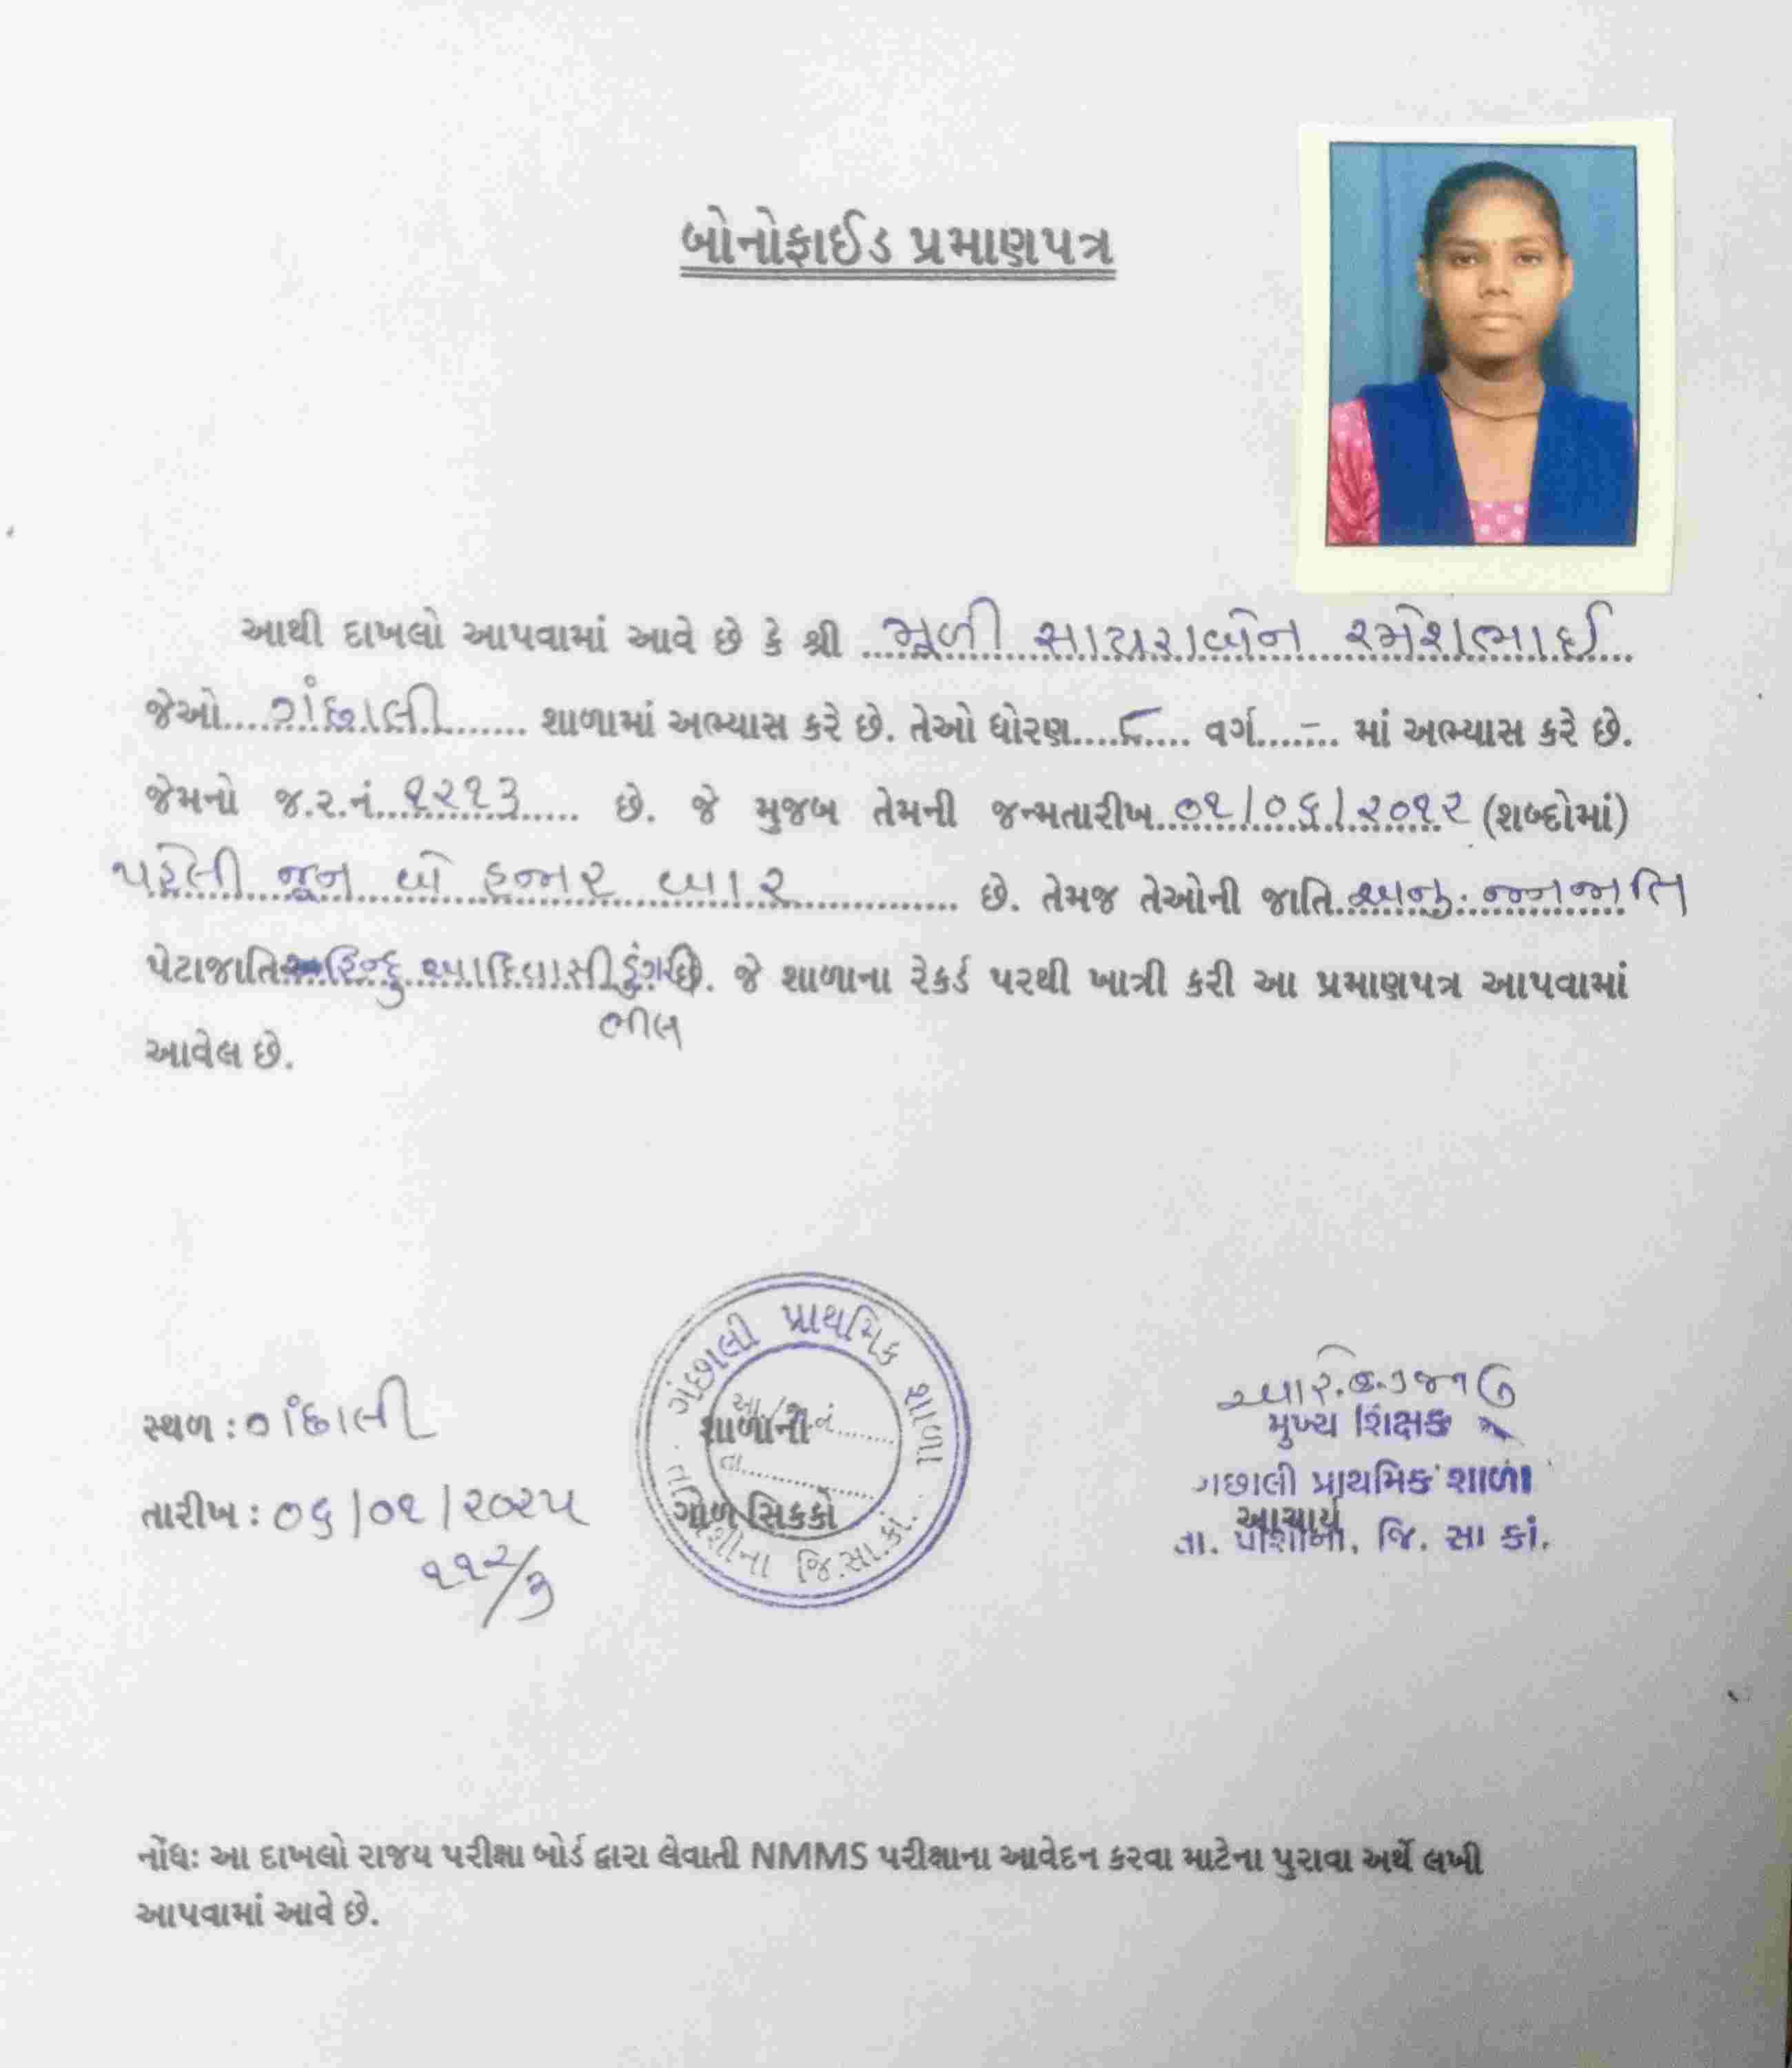 બોનોફાઈડ પ્રમાણપત્ર
આથી દાખલો આપવામાં આવે છે કે શ્રી ..... રમેશભાઈ
જેઓ....ગંછાલી....... શાળામાં અભ્યાસ કરે છે. તેઓ ધોરણ....૮.... વર્ગ....–... માં અભ્યાસ કરે છે.
જેમનો જ.ર.નં..૧૨૧૩..... છે. જે મુજબ તેમની જન્મતારીખ..૦૧/૦૬/૨૦૧૨ (શબ્દોમાં)
પહેલી જૂન બે હજાર બાર ............ છે. તેમજ તેઓની જાતિ..અનુ. જનજાતિ
પેટાજાતિ હિન્દુ આદિવાસી ડુંગરી છે. જે શાળાના રેકર્ડ પરથી ખાત્રી કરી આ પ્રમાણપત્ર આપવામાં
ભીલ
આવેલ છે.
ગંછાલી પ્રાથમિક શાળા
આ./જા.નં.........
તા...............
તા. પોશીના જિ.સા.કાં.
શાળાની
ગોળ સિક્કો
સ્થળ : ગંછાલી
તારીખ : ૦૬/૦૧/૨૦૨૫
૧૧૨/૩
મુખ્ય શિક્ષક
ગંછાલી પ્રાથમિક શાળા
આચાર્ય
તા. પોશીના, જિ. સા કાં.
નોંધઃ આ દાખલો રાજય પરીક્ષા બોર્ડ દ્વારા લેવાતી NMMS પરીક્ષાના આવેદન કરવા માટેના પુરાવા અર્થે લખી
આપવામાં આવે છે.